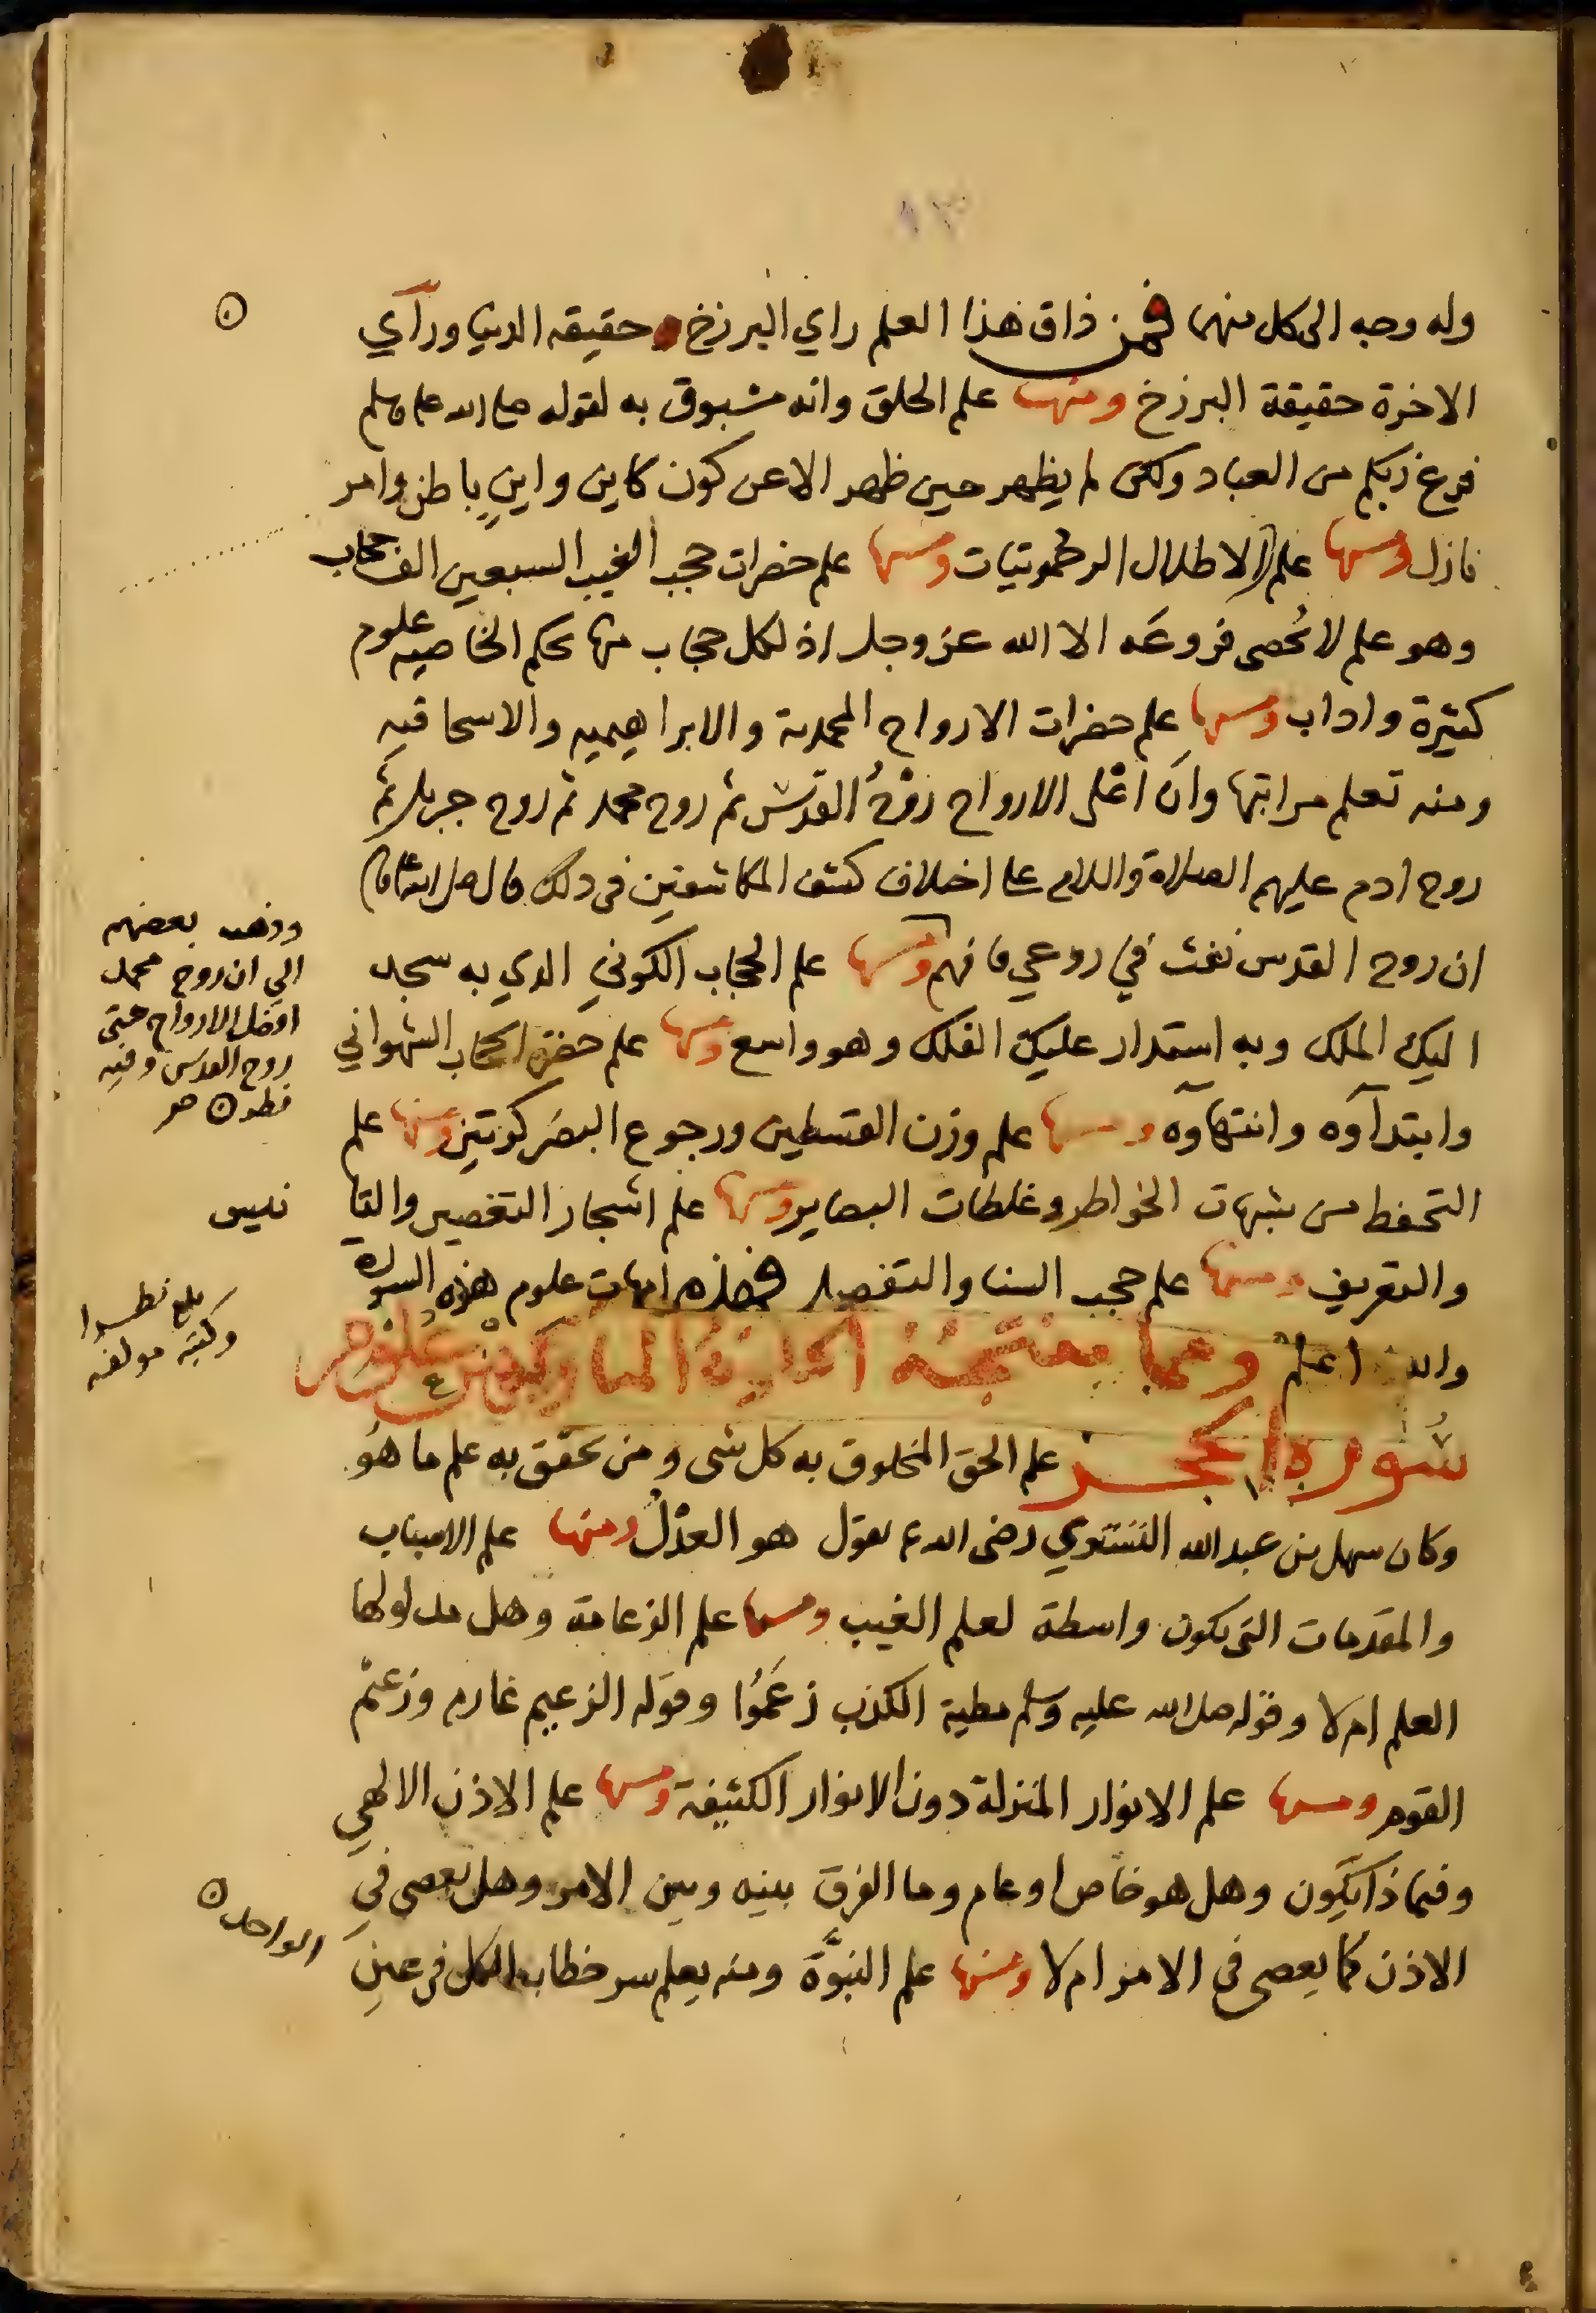 وله وجه الى كل منهما فمن ذاق هذا العلم راي البرزخ حقيقه الدنيا ورآي
الاخرة حقيقة البرزخ ومنها علم الخلق وانه مسبوق به لقوله صلى الله عليه وسلم
فرغ ربكم من العباد ولكن لم يظهر حين ظهر الا عن كون كاين واين باطن وامر
نازل ومنها علم الاطلال الرحموتيات ومنها علم حضرات حجب الغيب السبعين الف حجاب
وهو علم لا تُحصى فروعَه الا الله عز وجل اذ لكل حجاب منها بحكم الخاصيه علوم
كثيرة واداب ومنها علم حضرات الارواح المحمدية والابراهيميه والاسحاقيه
ومنه تعلم مراتبها وان اعلى الارواح روحُ القدس ثم روح محمد ثم روح جبريل ثم
روح ادم عليهم الصلاة والسلام على اختلاف كشف المكاشفين فى ذلك قال صلى الله عليه وسلم
ان روح القدس نفث في روعي فافهم ومنها علم الحجاب الكوني الدي به سجد
اليك الملك وبه استدار عليك الفلك وهو واسع ومنها علم حضرة الحجاب الشهواني
وابتدآوه وانتهاوه ومنها علم وزن القسطين ورجوع البصر كرتين ومنها علم
التحفظ من شبهات الخواطر وغلطات البصاير ومنها علم اشجار التقصير والتا
نيس
والتعريف ومنها علم حجب السنا والتفصيل فهذه امهات علوم هذه السورة
والله اعلم ومما علوم
سُورة الحجر علم الحق المخلوق به كل شى ومن تحقق به علم ما هُو
وكان سهل بن عبدالله التستوي رضى الله عنه يقول هو العدْلُ ومنها علم الاسباب
والمقدمات التى تكون واسطة لعلم الغيب ومنها علم الزعامة وهل مدلولها
العلم ام لا وقوله صلى الله عليه وسلم مطية الكذب زعَمُوا وقوله الزعيم غارم وزعمْ
القوم ومنها علم الانوار المنزلة دون الانوار الكثيفة ومنها علم الاذن الالهي
وفيما ذا يكون وهل هو خاص او عام وما الفرق بينه وبين الامر وهل يعصى في
الاذن كما يعصى فى الامر ام لا ومنها علم النبوَّة ومنه يعلم سر خطابه الكل فى عين
الواحد
وذهب بعضهم
الي ان روح محمد
افضل الارواح حتى
روح القدس وفيه
نظر
بلغ نظرا
وكتبه مولفه